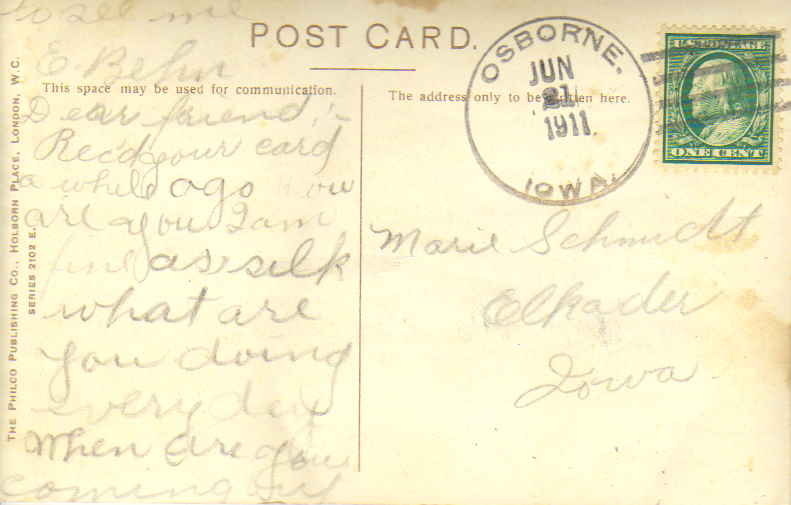 to see me
E. Behn
POST CARD.
This space may be used for communication.
The address only to be written here.
Dear friend,:~
Rec'd your card
a while ago How
are you I am
fine as silk
what are
you doing
every day
When are you
coming out
THE PHILCO PUBLISHING CO., HOLBORN PLACE, LONDON, W.C.
SERIES 2102 E.
OSBORNE.
JUN
21
1911.
IOWA.
ONE CENT
Marie Schmidt
Elkader
Iowa